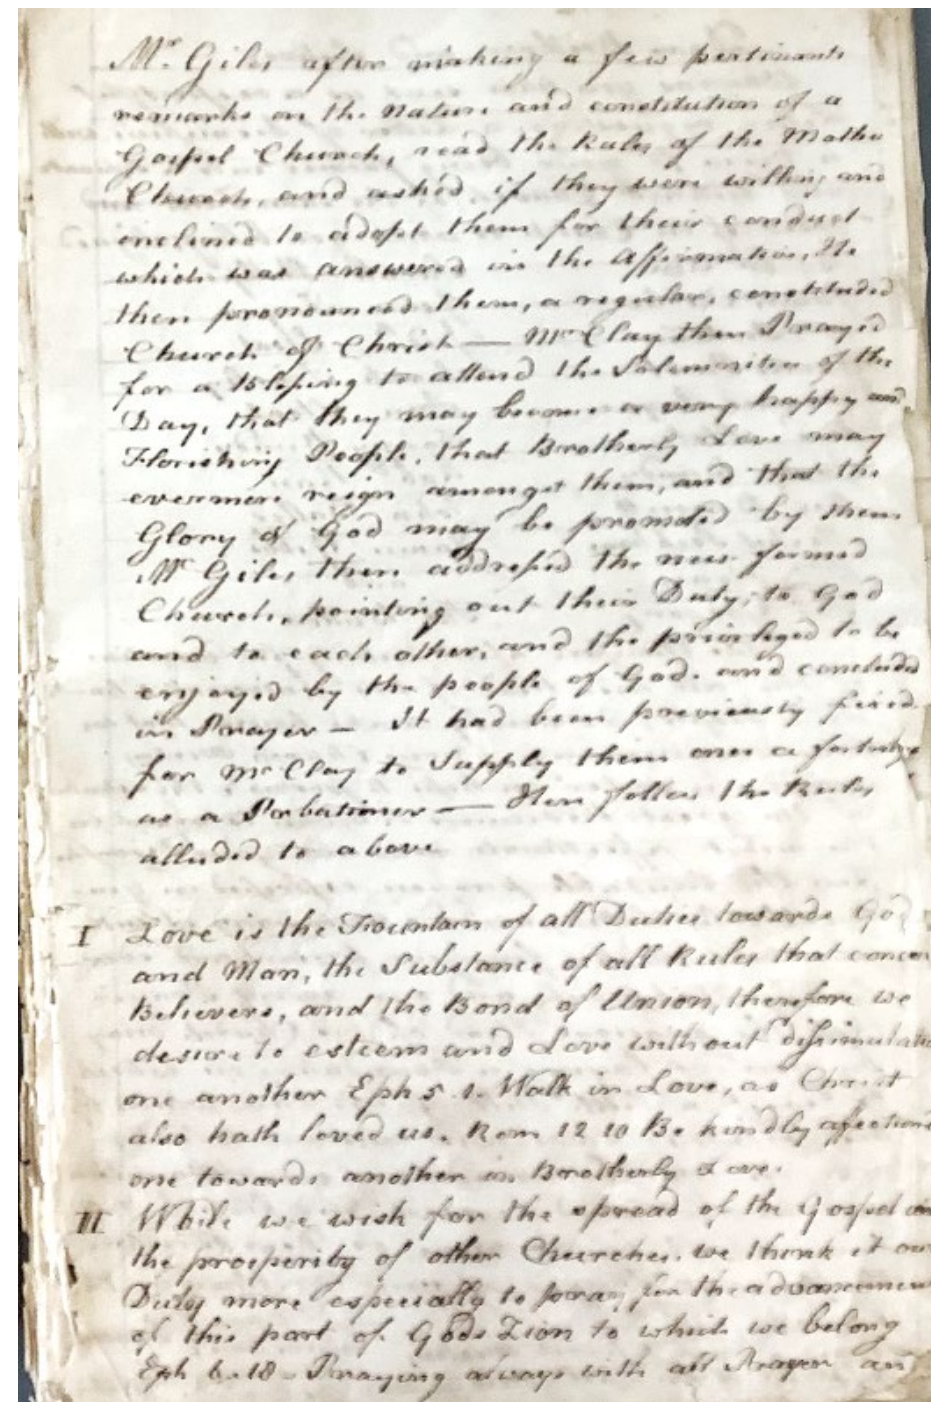 Mr Giles after making a few pertinent
remarks on the Nature and constitution of a
Gospel Church, read the Rules of the Mother
Church, and asked, if they were willing and
inclined to adopt them for their conduct
which was answered in the Affirmative, He
then pronounced them, a regular, constituded
Church of Christ — Mr Clay then Prayed
for a Blessing to attend the Solemnities of the
Day, that they may become a very happy and
Florishing People, that Brotherly Love may
evermore reign amongst them, and that the
Glory of God may be promoted by them
Mr Giles then addressed the new formed
Church, pointing out their Duty, to God
and to each other, and the privileges to be
enjoyed by the people of God. and concluded
in Prayer — It had been previously fixed
for Mr Clay to Supply them once a
as a Probationer — Here follow the Rules
alluded to above
I Love is the Fountain of all Duties towards God
and Man, the Substance of all Rules that concern
Believers, and the Bond of Union, therefore we
desire to esteem and Love without dissimulation
one another Eph 5. 1. Walk in Love, as Christ
also hath loved us. Rom 12 10 Be kindly affectioned
one towards another in Brotherly Love.
II While we wish for the spread of the Gospel in
the prosperity of other Churches. we think it our
Duty more especially to pray for the advancement
of this part of Gods Zion to which we belong
Eph 6. 18 - Praying always with all Prayer an